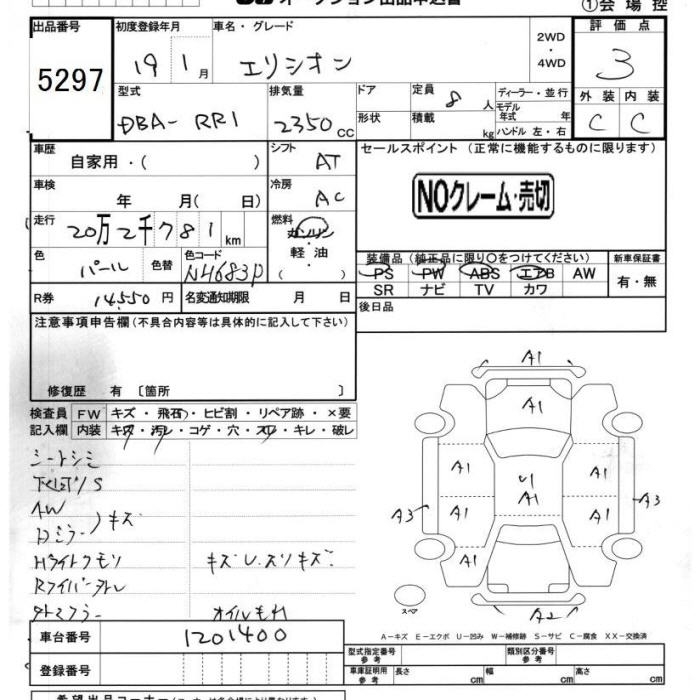 オークション出品申込書
①会場控
出品番号 初度登録年月 車名・グレード 2WD・4WD 評価点
5297 19 1月 エリシオン 3
型式 排気量 ドア 定員 8人 ディーラー・並行 外装 内装
DBA-RR1 2350 CC 形状 積載 kg モデル年式 年 ハンドル 左・右 C C
車歴 自家用・( ) シフト AT セールスポイント (正常に機能するものに限ります)
車検 年 月( 日) 冷房 AC NOクレーム・売切
走行 20万2千781km 燃料 ガソリン 軽油 ( )
色 パール 色替 色コード NH683P 装備品 (純正品に限り〇をつけてください) 新車保証書
PS PW ABS エアB AW 有・無
SR ナビ TV カワ
R券 14,550円 名変通知期限 月 日 後日品
注意事項申告欄 (不具合内容等は具体的に記入して下さい)
修復歴 有 〔箇所 〕
検査員 FW キズ・飛石・ヒビ割・リペア跡・×要
記入欄 内装 キズ・汚レ・コゲ・穴・スレ・キレ・破レ
シートシミ
AW
Dミラー )キズ
Hライトクモリ キズU.スリキズ.
Rワイパー
オイルモレ
A1
A1
A1 U1 A1 A1
A3 A1 A1 A3
A1
A2
スペア
A-キズ E-エクボ U-凹み W-補修跡 S-サビ C-腐食 XX-交換済
車台番号 1201400
型式指定番号 参考 類別区分番号 参考
登録番号 車庫証明用 参考 長さ cm 幅 cm 高さ cm